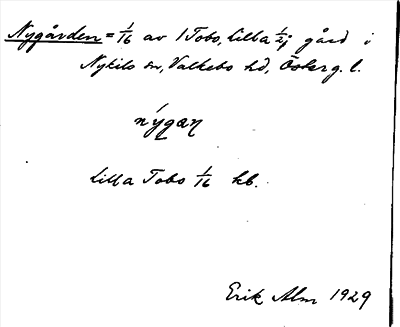 Nygården = 1/16 av 1 Tobo, Lilla 1/2j gård i
Nykils sn, Valkebo hd, Österg. l.
nýgaɳ
Lilla Tobo 1/16 hb.
Erik Alm 1929